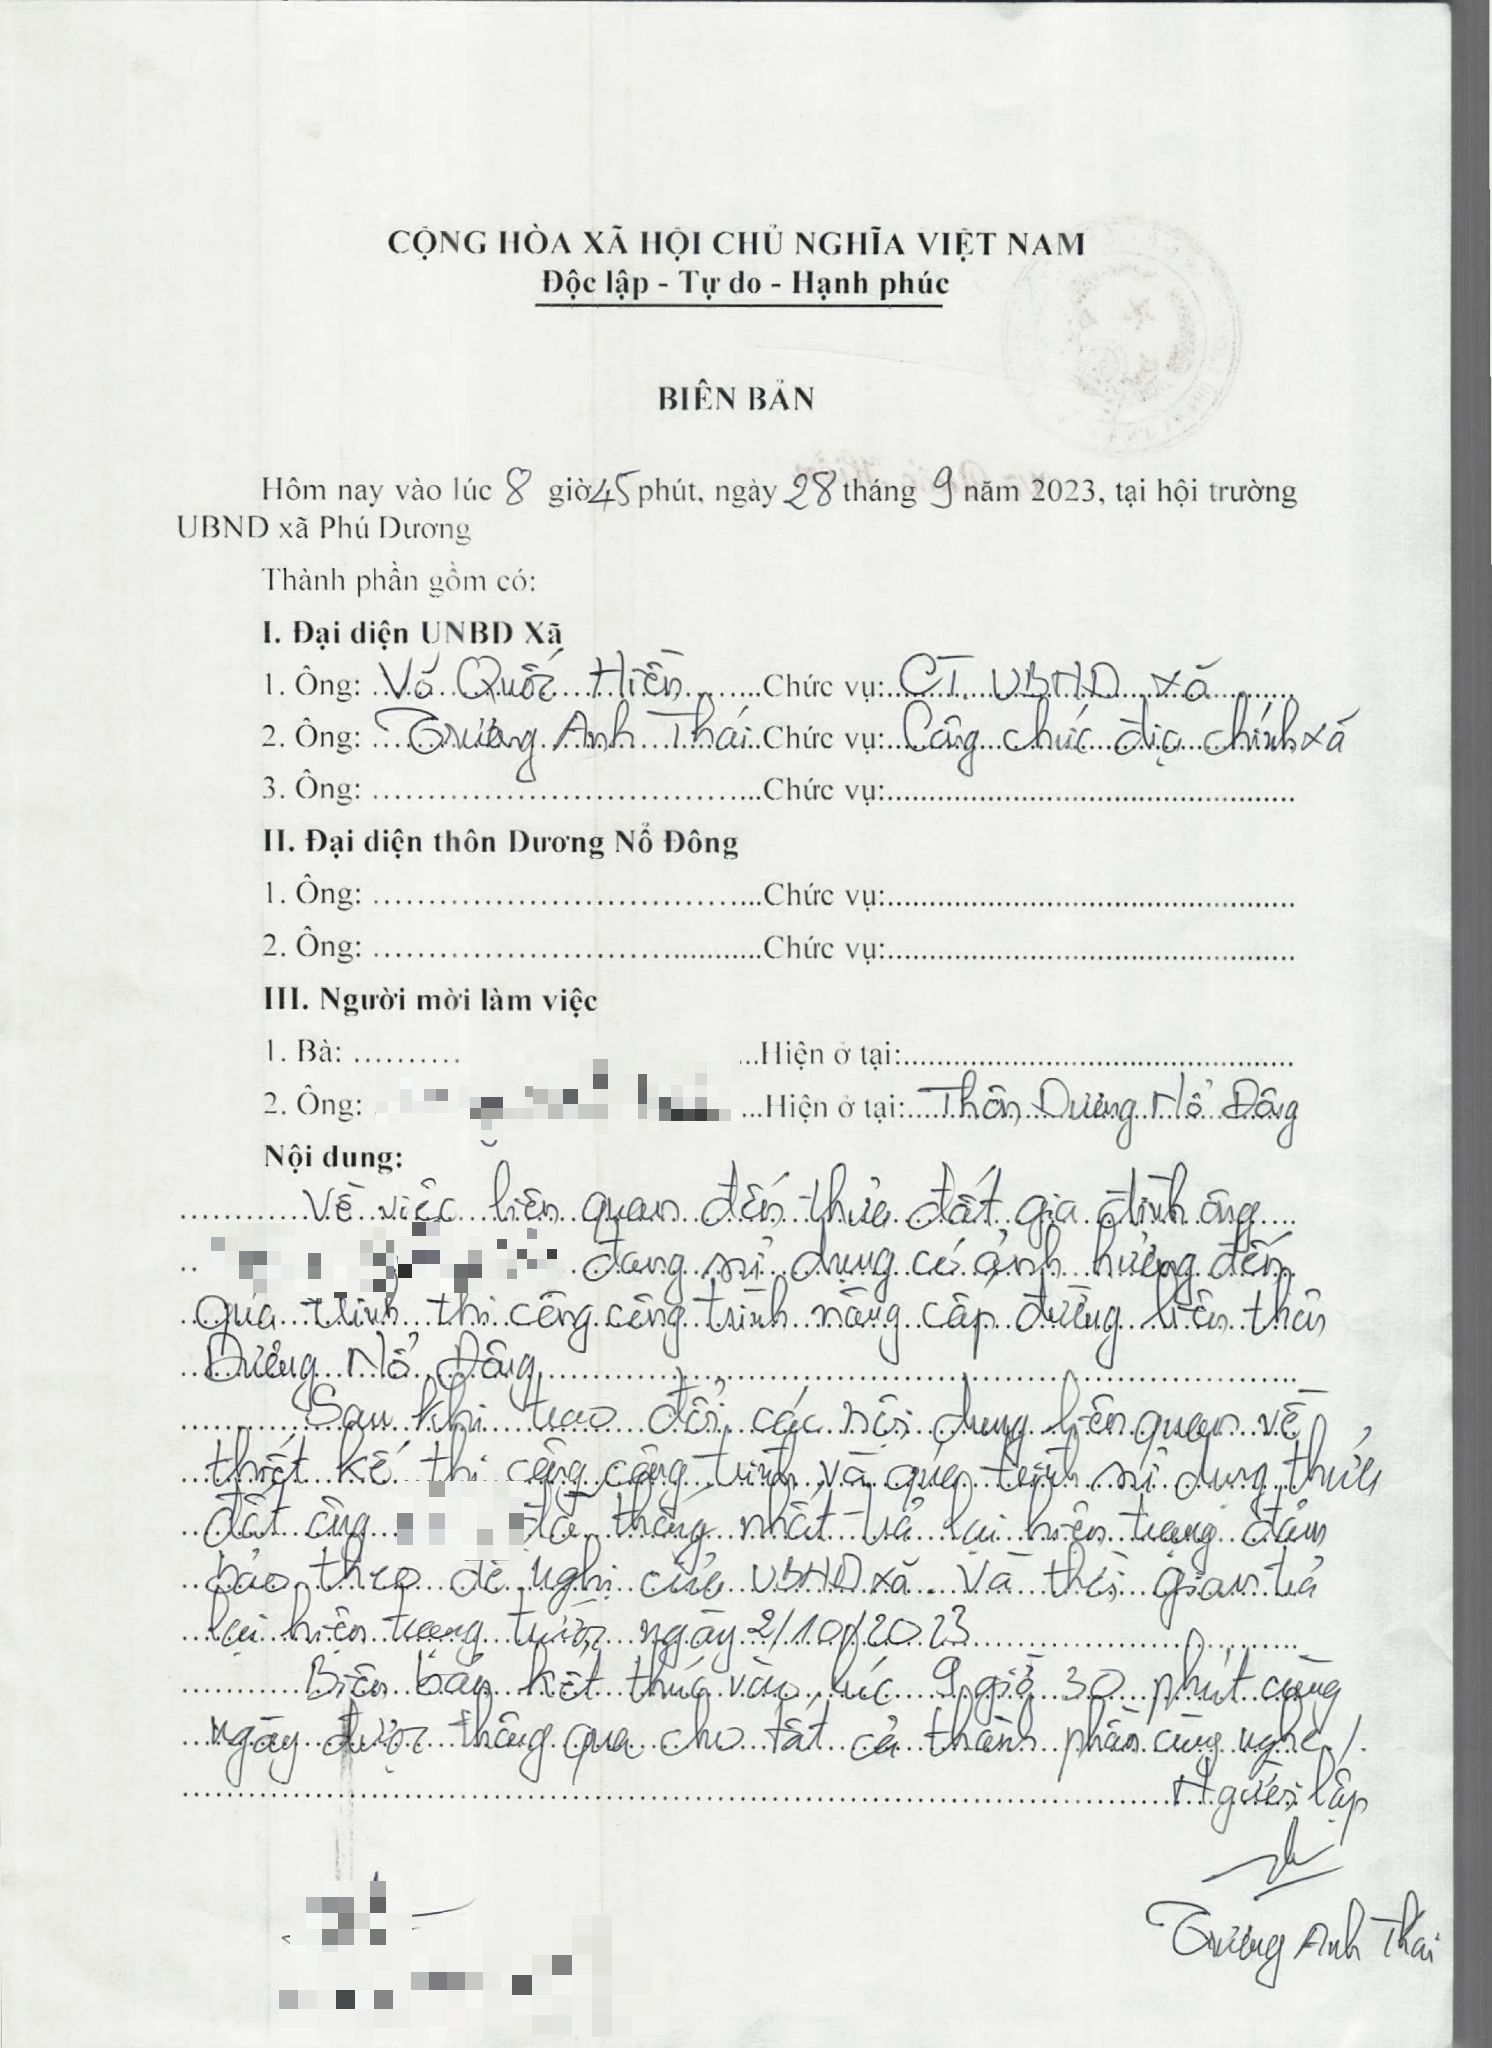 CỘNG HÒA XÃ HỘI CHỦ NGHĨA VIỆT NAM
Độc lập - Tự do - Hạnh phúc
BIÊN BẢN
Hôm nay vào lúc 8 giờ 45 phút, ngày 28 tháng 9 năm 2023, tại hội trường
UBND xã Phú Dương
Thành phần gồm có:
I. Đại diện UNBD Xã
1. Ông: Võ Quốc Hiền Chức vụ: CT. UBND xã
2. Ông: Trương Anh Thái Chức vụ: Công chức địa chính xã
3. Ông: Chức vụ:
II. Đại diện thôn Dương Nổ Đông
1. Ông: Chức vụ:
2. Ông: Chức vụ:
III. Người mời làm việc
1. Bà: Hiện ở tại:
2. Ông: Hiện ở tại: Thôn Dương Nổ Đông
Nội dung:
Về việc liên quan đến thửa đất gia đình ông
đang sử dụng có ảnh hưởng đến
quá trình thi công công trình nâng cấp đường liên thôn
Dương Nổ Đông
Sau khi trao đổi các nội dung liên quan về
thiết kế thi công công trình và quá trình sử dụng thửa
đất ông đã thống nhất trả lại hiện trạng đảm
bảo theo đề nghị của UBND xã. Và thời gian trả
lại hiện trạng trước ngày 2/10/2023
Biên bản kết thúc vào lúc 9 giờ 30 phút cùng
ngày được thông qua cho tất cả thành phần cùng nghe./.
Người lập
Trương Anh Thái